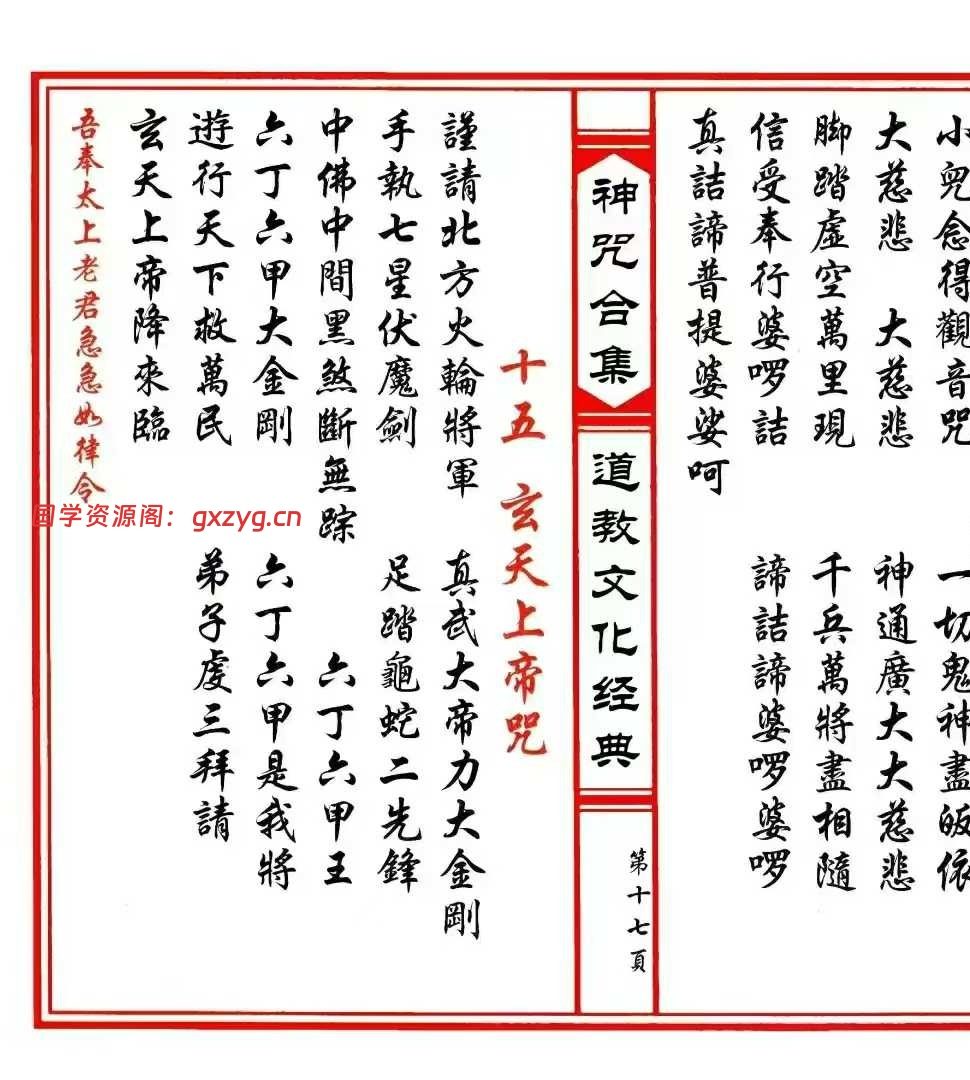 小兒念得觀音咒 一切鬼神盡皈依
大慈悲 大慈悲 神通廣大大慈悲
脚踏虛空萬里現 千兵萬將盡相隨
信受奉行婆啰詰 諦詰諦婆啰婆啰
真詰諦普提婆娑呵
神咒合集
道教文化经典
第十七頁
十五 玄天上帝咒
謹請北方火輪將軍 真武大帝力大金剛
手執七星伏魔劍 足踏龜蛇二先鋒
中佛中間黑煞斷無踪 六丁六甲王
六丁六甲大金剛 六丁六甲是我將
遊行天下救萬民 弟子虔三拜請
玄天上帝降來臨
吾奉太上老君急急如律令
国学资源阁：gxzyg.cn